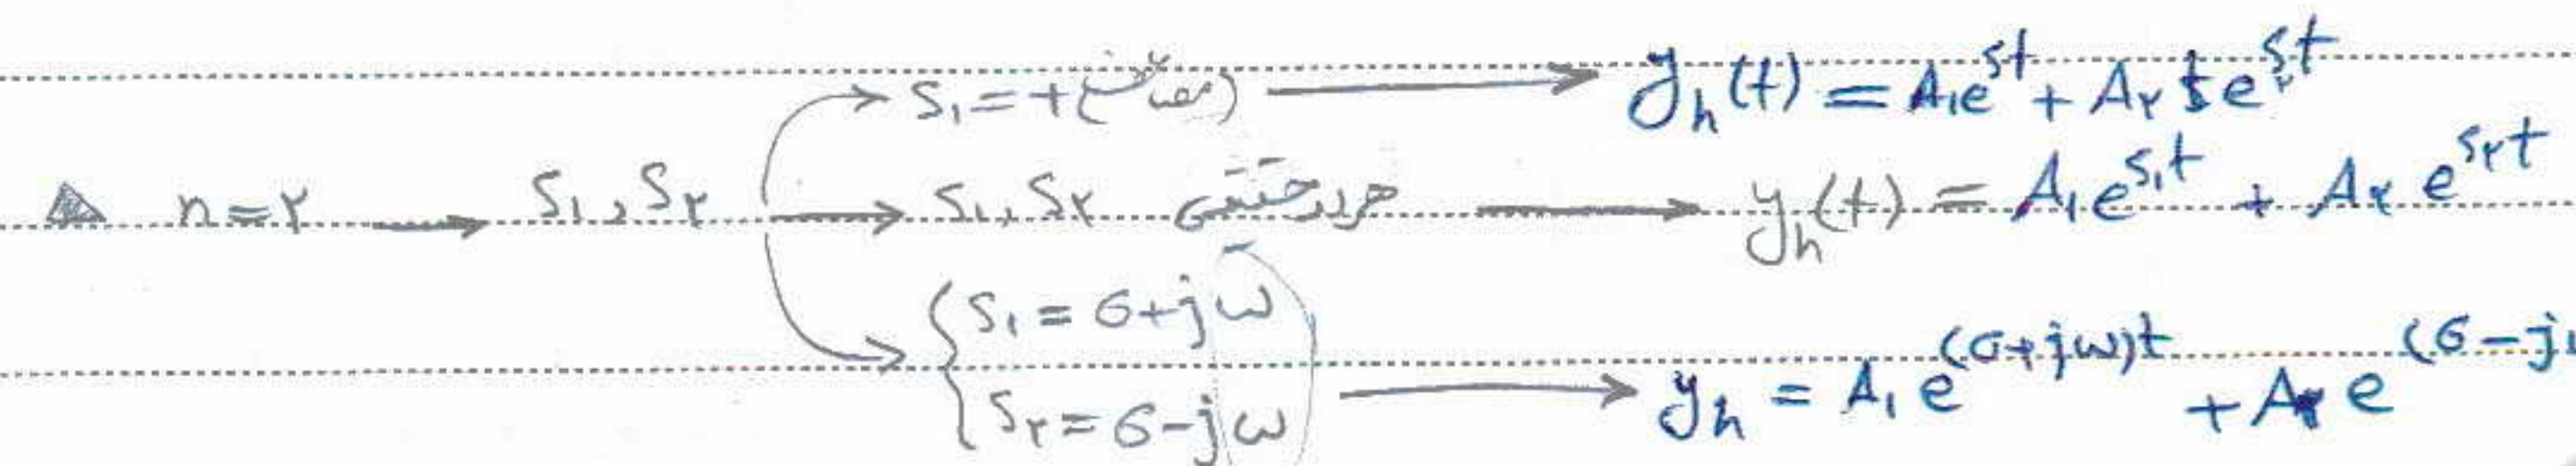 S₁ = +(مضاعف) → y_h(t) = A₁e^{st} + A₂ t e^{s₂t}
n=۲ → S₁ , S₂ → S₁, S₂ هر دو حقیقی → y_h(t) = A₁e^{s₁t} + A₂ e^{s₂t}
{ S₁ = σ+jω
S₂ = σ-jω → y_h = A₁ e^{(σ+jω)t} + A₂ e^{(σ-j